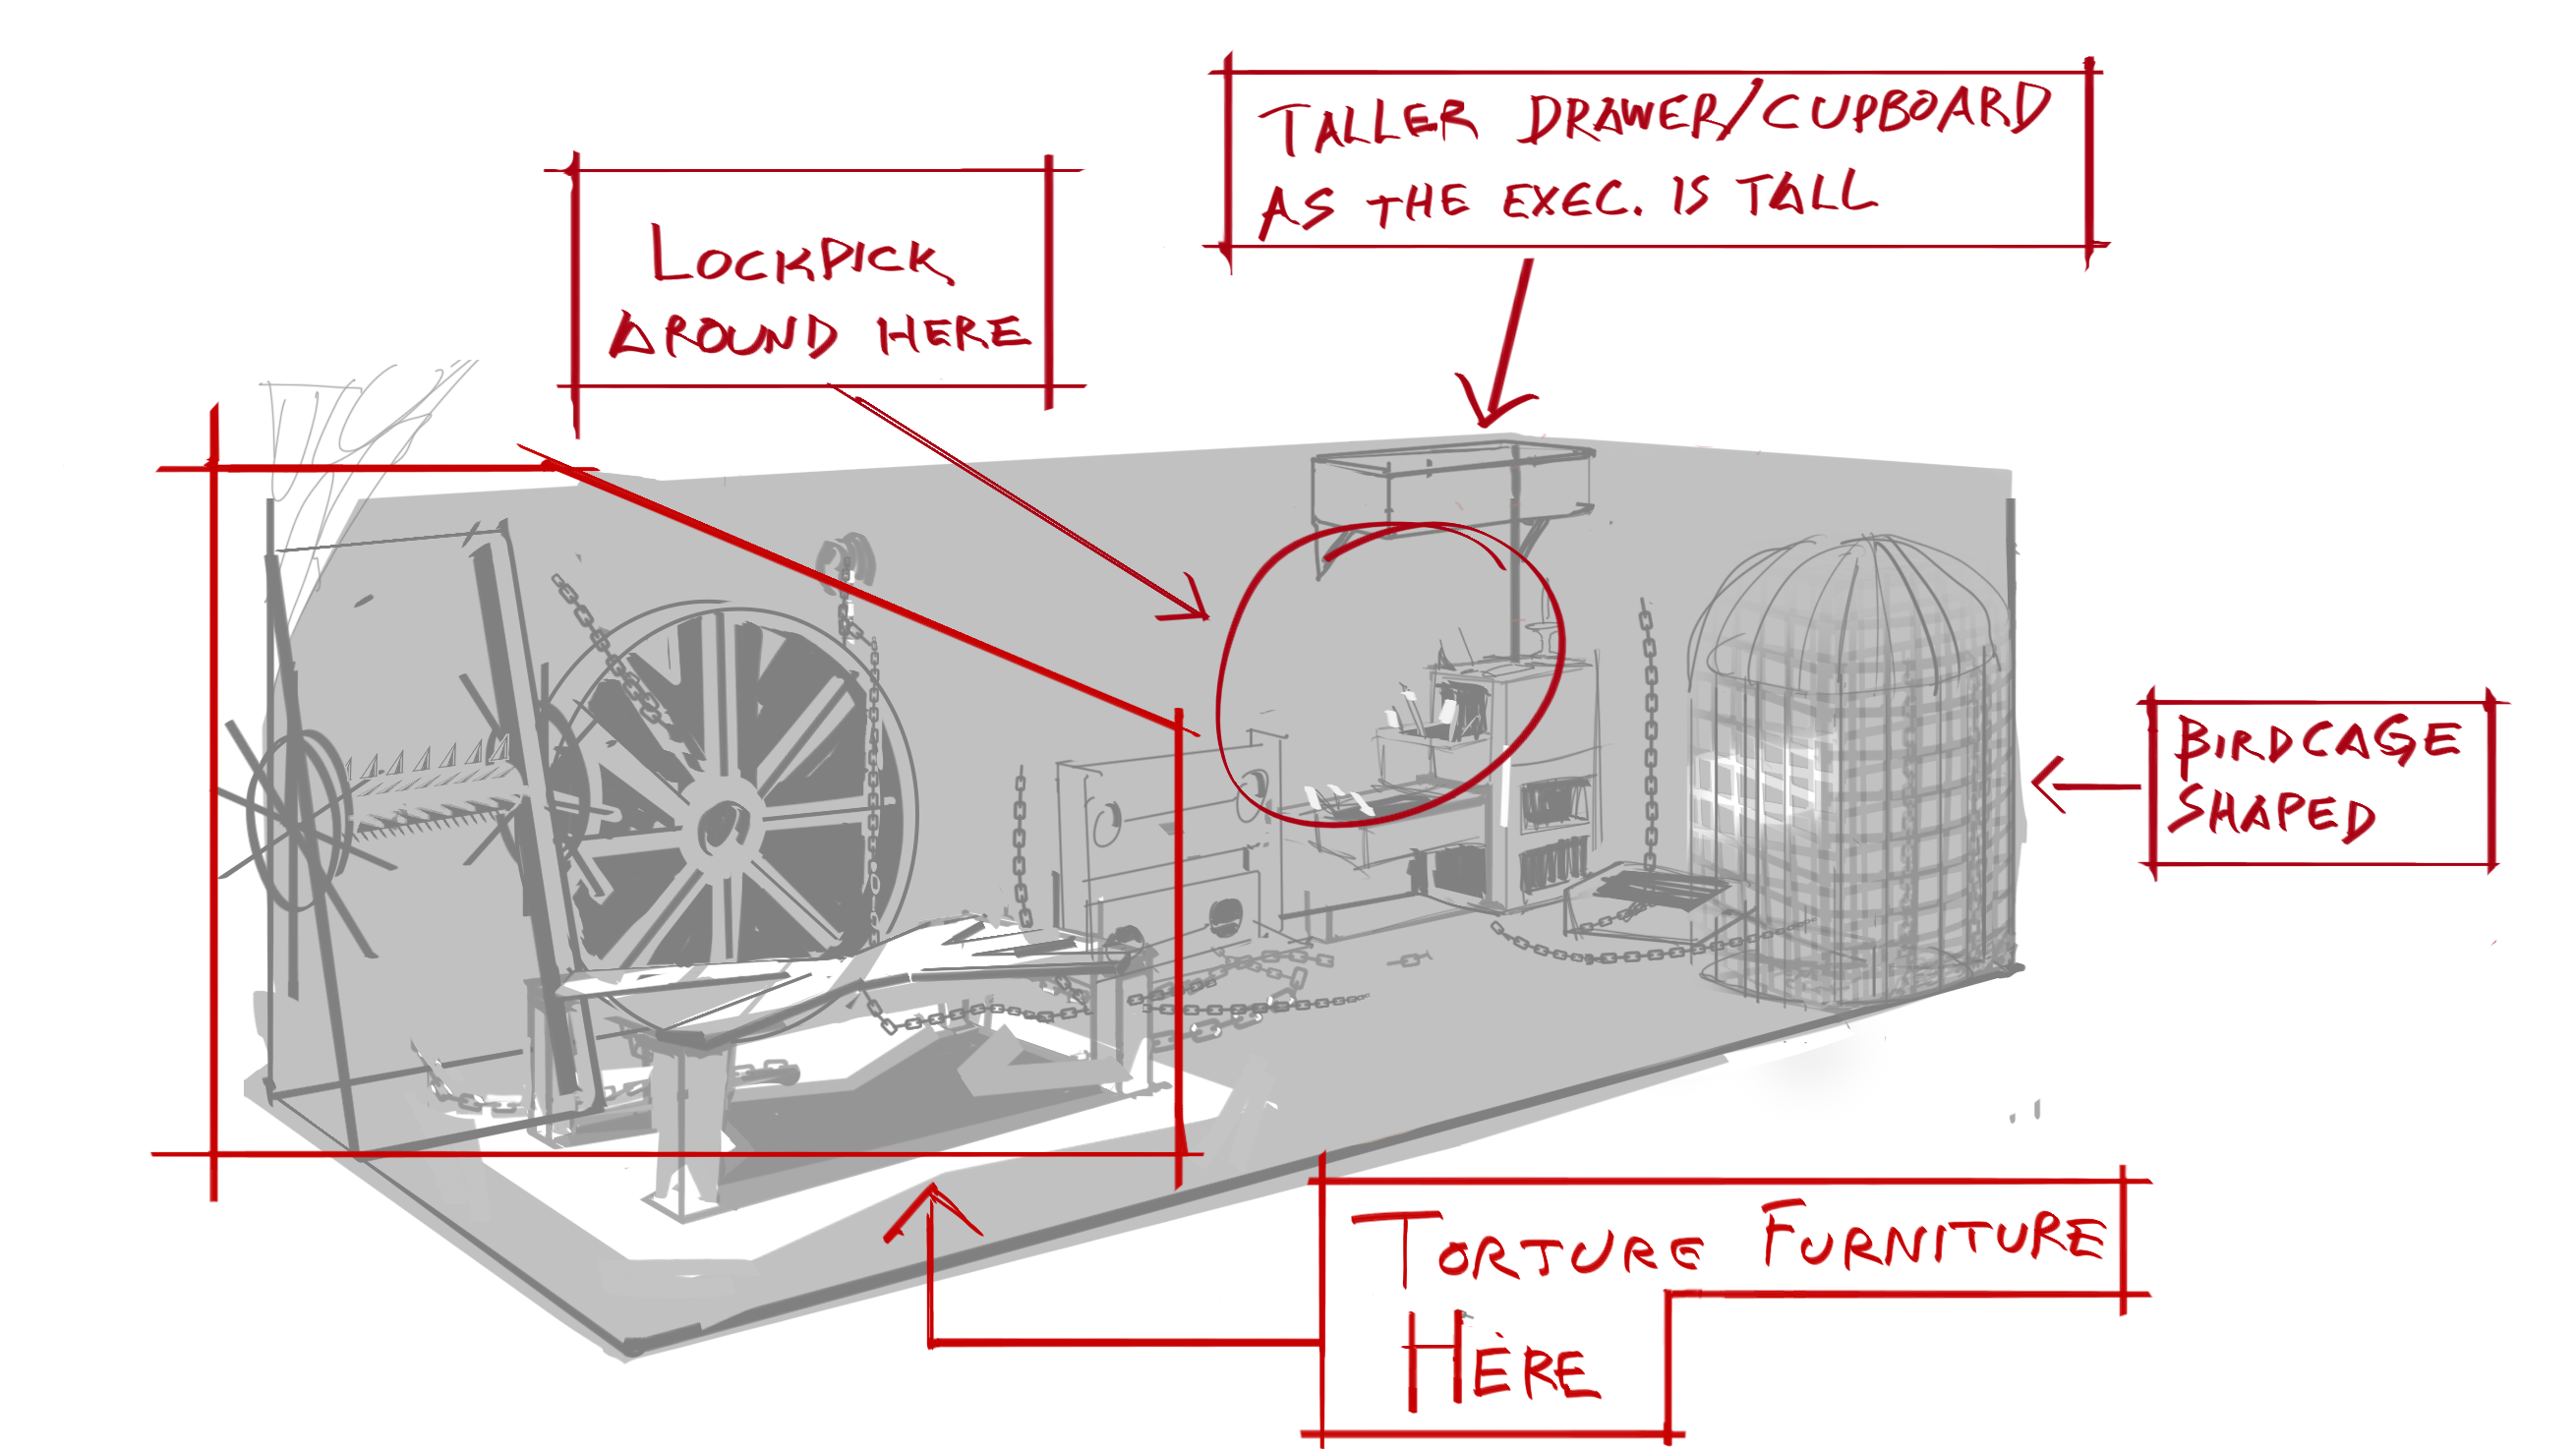 TALLER DRAWER/CUPBOARD
AS THE EXEC. IS TALL
LOCKPICK
AROUND HERE
BIRDCAGE
SHAPED
TORTURE FURNITURE
HERE